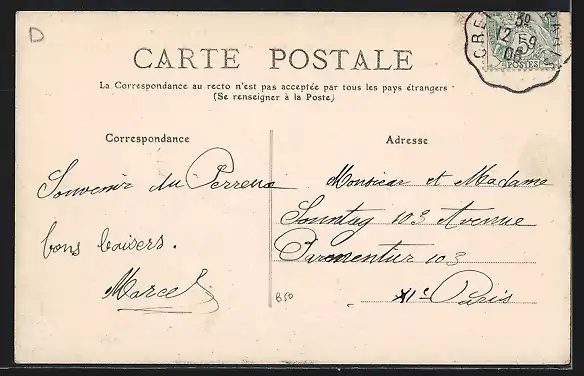 D
CARTE POSTALE
La Correspondance au recto n'est pas acceptée par tous les pays étrangers
(Se renseigner à la Poste)
Correspondance
Adresse
Souvenir du Perreux
bons baisers.
Marcel
Monsieur et Madame
Sonntag 103 Avenue
Parmentier 103
XIe Paris
B50
CRE
3º
12 5
06
POSTES